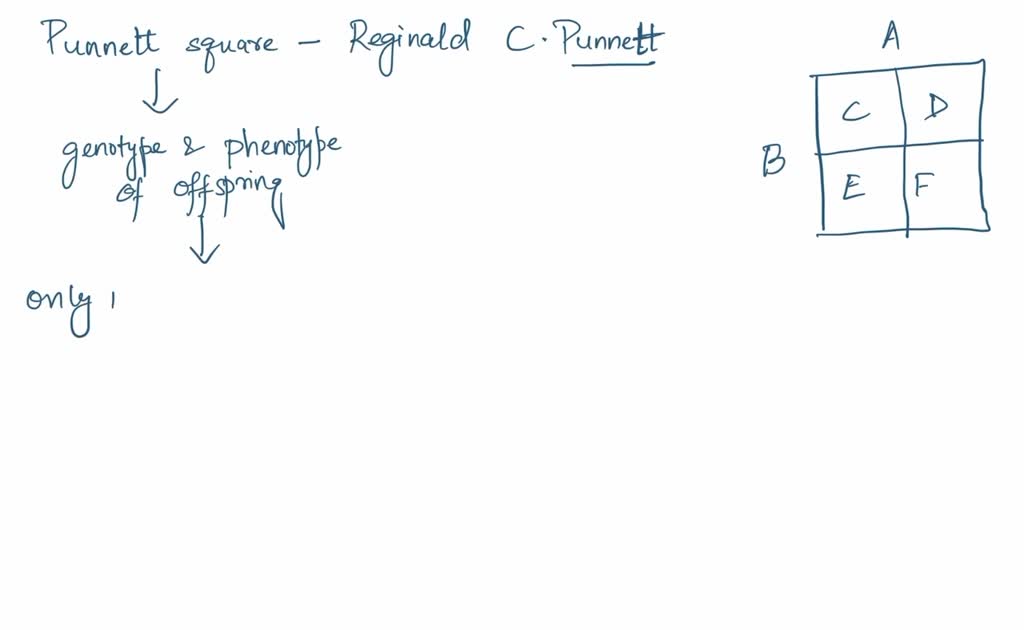 Punnett square – Reginald C. Punnett
genotype & phenotype
of offspring
only
A
B
C D
E F